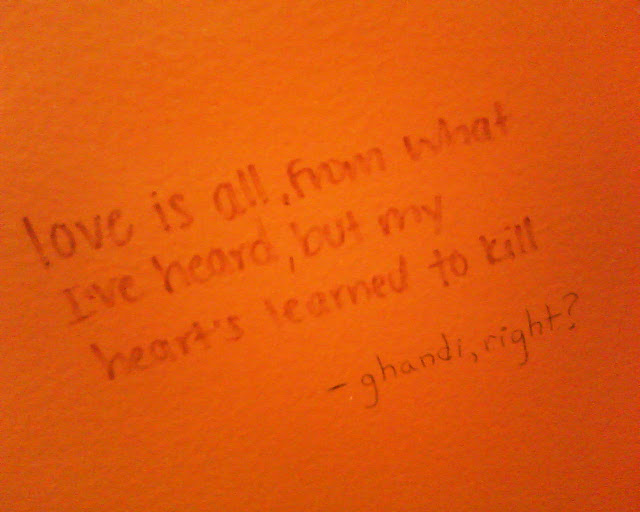 love is all, from what
I've heard, but my
heart's learned to kill
- ghandi, right?